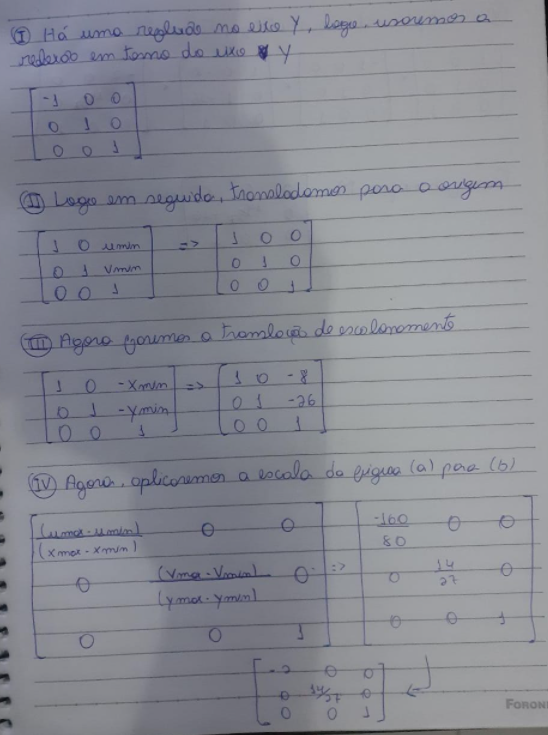 I Há uma reflexão no eixo Y, logo usaremos a
reflexão em torno do eixo Y
-1 0 0
0 1 0
0 0 1
II Logo em seguida, transladamos para a origem
1 0 umin => 1 0 0
0 1 vmin 0 1 0
0 0 1 0 0 1
III Agora faremos a translação do escalonamento
1 0 -xmin => 1 0 -8
0 1 -ymin 0 1 -26
0 0 1 0 0 1
IV Agora, aplicaremos a escala da figura (a) para (b)
(umax-umin) 0 0 -160 0 0
(xmax-xmin) 80
0 (Vmax-Vmin) 0 => 0 14 0
(ymax-ymin) 27
0 0 1 0 0 1
-2 0 0
0 14/27 0
0 0 1
FORONI